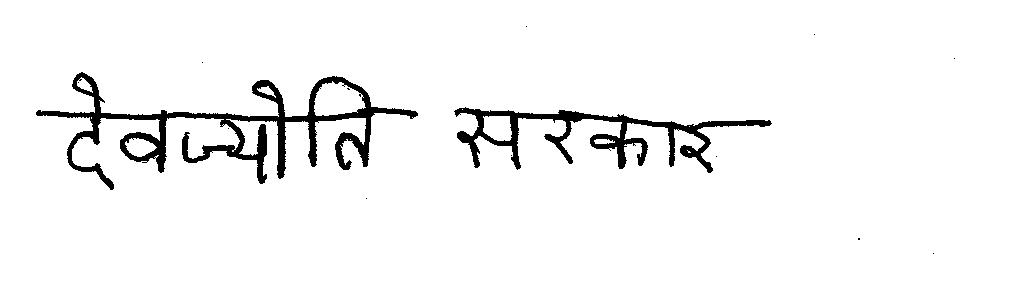 देवज्योति सरकार